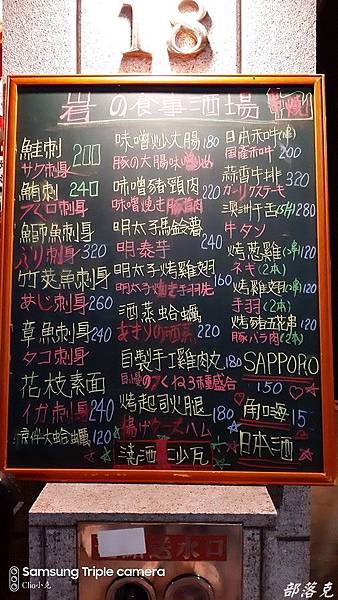 18
岩の食事酒場
鮭刺 200
サケ刺身
鮪刺 240
マグロ刺身
鰤魚刺身 320
ぶり刺身
竹筴魚刺身
あじ刺身 260
章魚刺身 240
タコ刺身
花枝素面
イカ刺身 240
涼伴大蛤蠣 120
味噌炒大腸 180
豚の大腸味噌炒め
味噌豬頸肉 220
味噌焼き豚首肉
明太子馬鈴薯 240
明泰芋
明太子烤雞翅 160
明太子焼き手羽先
酒蒸蛤蠣
あさりの酒蒸 220
自製手工雞肉丸 180
つくね3種盛合
烤起司火腿 180
揚げチーズハム
日本和牛(串)
国産和牛 200
蒜香牛排 320
ガーリックステーキ
澳洲牛舌(5片) 280
牛タン
烤蔥雞(2串) 120
ネギ(2本)
烤雞翅(2串) 120
手羽(2本)
烤豬五花串 120
豚バラ肉(2本)
SAPPORO
150
角嗨 15
日本酒
送水口
Samsung Triple camera
Clio小克
部落克